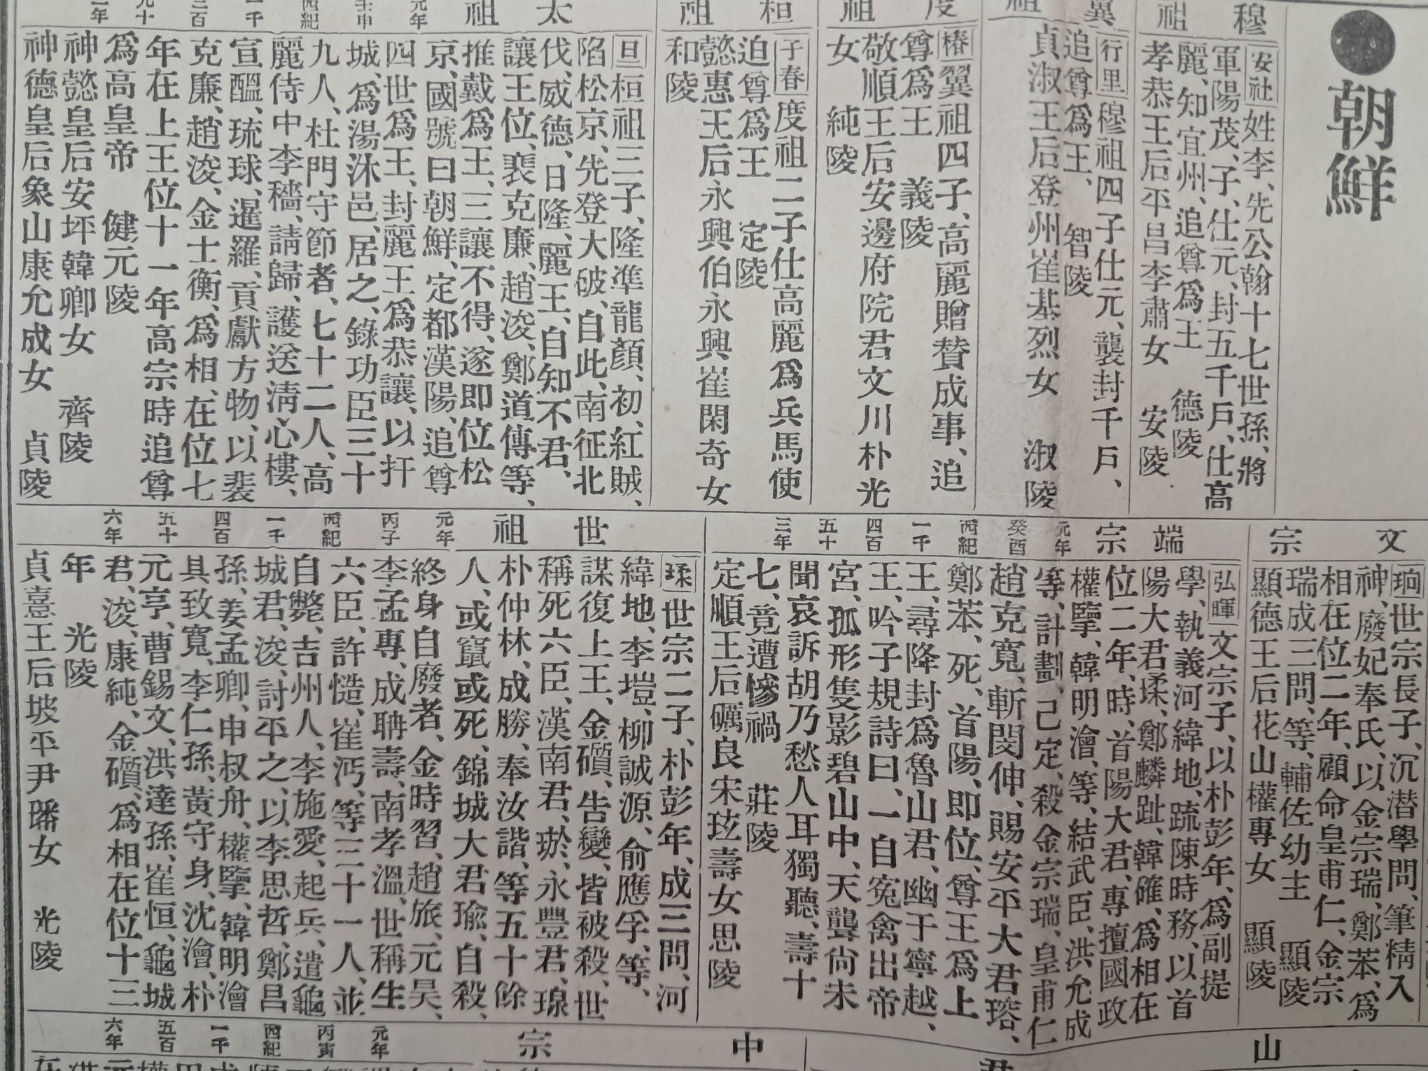 ●朝鮮
穆祖
安社姓李、先公翰十七世孫、將
軍陽茂、子、仕元、封五千戶、仕高
麗、知宜州、追尊爲王　德陵
孝恭王后平昌李肅女　安陵
翼祖
行里穆祖四子仕元、襲封千戶、
追尊爲王、　智陵
貞淑王后登州崔基烈女　淑陵
度祖
椿翼祖四子、高麗贈贊成事、追
尊爲王　義陵
敬順王后安邊府院君文川朴光
女　純陵
桓祖
子春度祖二子仕高麗爲兵馬使
追尊爲王　定陵
懿惠王后永興伯永興崔閑奇女
和陵
太祖
元年
壬申
西紀
一千
三百
九十
二年
旦桓祖三子、隆準龍顏、初、紅賊、
陷松京、先登大破、自此、南征北
伐、威德、日隆、麗王、自知不君、
讓王位、裵克廉、趙浚、鄭道傳等、
推戴爲王、三讓不得、遂即位松
京、國號曰朝鮮、定都漢陽、追尊
四世爲王、封麗王爲恭讓、以扞
城、爲湯沐邑、居之、錄功臣三十
九人、杜門守節者、七十二人、高
麗侍中李穡、請歸、護送淸心樓、
宣醞、琉球、暹羅、貢獻方物、以裵
克廉、趙浚、金士衡、爲相、在位七
年在上王位十一年高宗時追尊
爲高皇帝　健元陵
神懿皇后安坪韓卿女　齊陵
神德皇后象山康允成女　貞陵
文宗
珦世宗長子、沉潜學問筆精入
神、廢妃奉氏、以金宗瑞、鄭苯、爲
相在位二年、顧命皇甫仁、金宗
瑞成三問、等、輔佐幼主　顯陵
顯德王后花山權專女　顯陵
端宗
元年
癸酉
西紀
一千
四百
五十
三年
弘暉文宗子、以朴彭年、爲副提
學、執義河緯地、疏陳時務、以首
陽大君瑈、鄭麟趾、韓確、爲相在
位二年、時、首陽大君、專擅國政
權擥、韓明澮、等、結武臣、洪允成
等、計劃、己定、殺金宗瑞、皇甫仁
趙克寬、斬閔伸、賜安平大君瑢、
鄭苯、死、首陽、即位、尊王爲上
王、尋降封爲魯山君、幽于寧越、
王、吟子規詩曰、一自寃禽出帝
宮、孤形隻影碧山中、天聾尙未
聞哀訴胡乃愁人耳獨聽、壽十
七、竟遭慘禍　莊陵
定順王后礪良宋玹壽女思陵
世祖
元年
丙子
西紀
一千
四百
五十
六年
瑈世宗二子、朴彭年、成三問、河
緯地、李塏、柳誠源、俞應孚、等、
謀復上王、金礩、告變、皆被殺、世
稱死六臣、漢南君、𤥽、永豐君、瑔
朴仲林、成勝、奉汝諧、等五十餘
人、或竄或死、錦城大君瑜、自殺、
終身自廢者、金時習、趙旅、元昊、
李孟專、成聃壽、南孝溫、世稱生
六臣、許慥、崔沔等三十一人並
自斃、吉州人、李施愛、起兵、遣龜
城君、浚、討平之、以李思哲、鄭昌
孫、姜孟卿、申叔舟、權擥、韓明澮
具致寬、李仁孫、黃守身、沈澮、朴
元亨、曹錫文、洪達孫、崔恒、龜城
君、浚、康純、金礩、爲相在位十三
年　光陵
貞憙王后坡平尹璠女　光陵
山君
中宗
元年
丙寅
西紀
一千
五百
六年